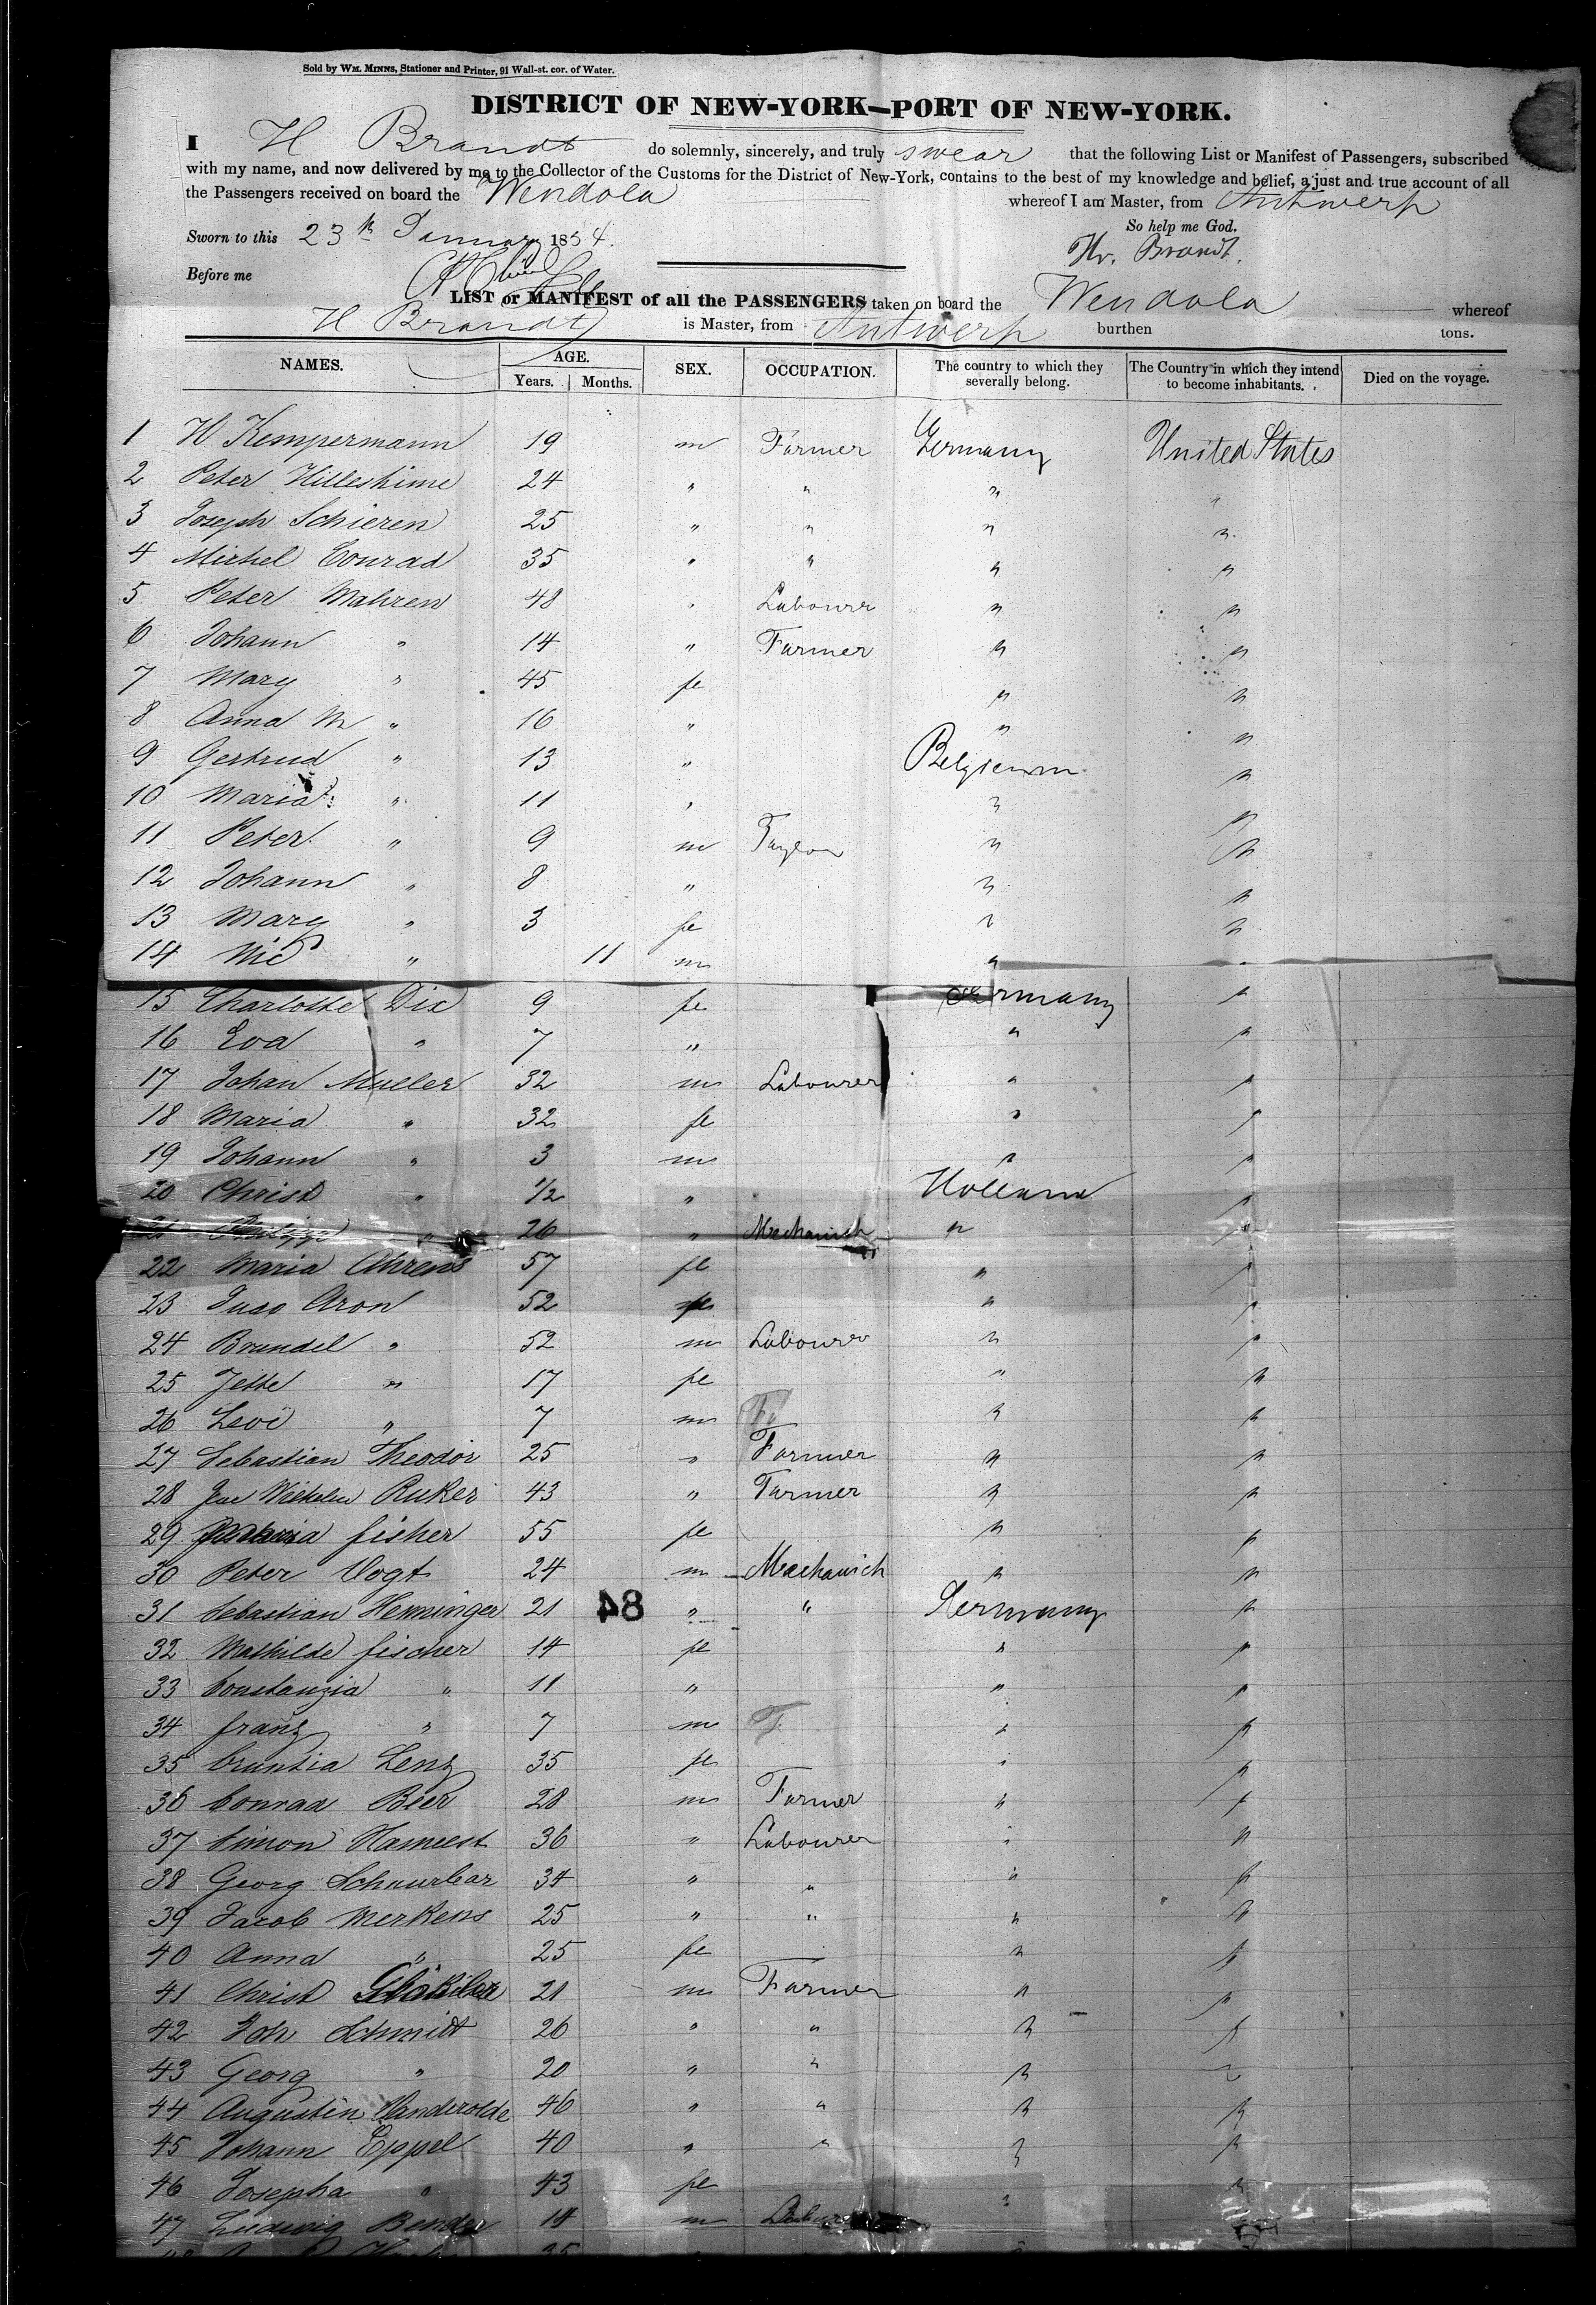 Sold by WM. MINNS, Stationer and Printer, 91 Wall-st. cor. of Water.
DISTRICT OF NEW-YORK—PORT OF NEW-YORK.
I H Brandt do solemnly, sincerely, and truly swear that the following List or Manifest of Passengers, subscribed
with my name, and now delivered by me to the Collector of the Customs for the District of New-York, contains to the best of my knowledge and belief, a just and true account of all
the Passengers received on board the Wendola whereof I am Master, from Antwerp
So help me God.
Sworn to this 23th January 1854.
Hr. Brandt.
Before me
LIST or MANIFEST of all the PASSENGERS taken on board the Wendola whereof
H Brandt is Master, from Antwerp burthen tons.
NAMES. AGE. Years. Months. SEX. OCCUPATION. The country to which they severally belong. The Country in which they intend to become inhabitants. Died on the voyage.
1 W Kempermann 19 m Farmer Germany United States
2 Peter Hilleshime 24 " " " "
3 Joseph Schieren 25 " " " "
4 Michel Conrad 35 " " " "
5 Peter Mahren 48 " Labourer " "
6 Johann " 14 " Farmer " "
7 Mary " 45 fe " "
8 Anna M " 16 " " "
9 Gertrud " 13 " Belgieum "
10 Maria " 11 " " "
11 Peter " 9 m Taylor " "
12 Johann " 8 " " "
13 Mary " 3 fe " "
14 Nic " 11 m " "
15 Charlotte Dix 9 fe Germany "
16 Eva " 7 " " "
17 Johan Muller 32 m Labourer " "
18 Maria " 32 fe " "
19 Johann " 3 m " "
20 Christ " 1/2 " Holland "
21 " 26 " Mechanich " "
22 Maria Ahrens 57 fe " "
23 Aron 52 fe " "
24 Brundel " 52 m Labourer " "
25 Jette " 17 fe " "
26 Levi " 7 m " "
27 Sebastian Theodor 25 " Farmer " "
28 Wilhelm Ruker 43 " Farmer " "
29 fisher 55 fe " "
30 Peter Vogt 24 m Mechanich " "
31 Sebastian Henninger 21 84 " " Germany "
32 Mathilde fischer 14 fe " "
33 Constanzia " 11 " " "
34 franz " 7 m " "
35 Lenz 35 fe " "
36 Conrad Beer 28 m Farmer " "
37 Simon 36 " Labourer " "
38 Georg Schnurbar 34 " " " "
39 Jacob Merkens 25 " " " "
40 Anna " 25 fe " "
41 Christ 21 m Farmer " "
42 Joh Schmidt 26 " " " "
43 Georg " 20 " " " "
44 Augustin Vanderolde 46 " " " "
45 Johann Eppel 40 " " " "
46 Josepha " 43 fe " "
47 Ludwig Bender 18 m